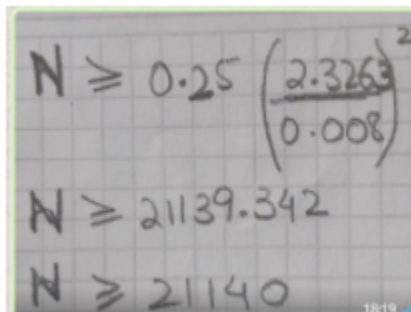 N ≥ 0.25 (2.3263/0.008)²
N ≥ 21139.342
N ≥ 21140
18:19